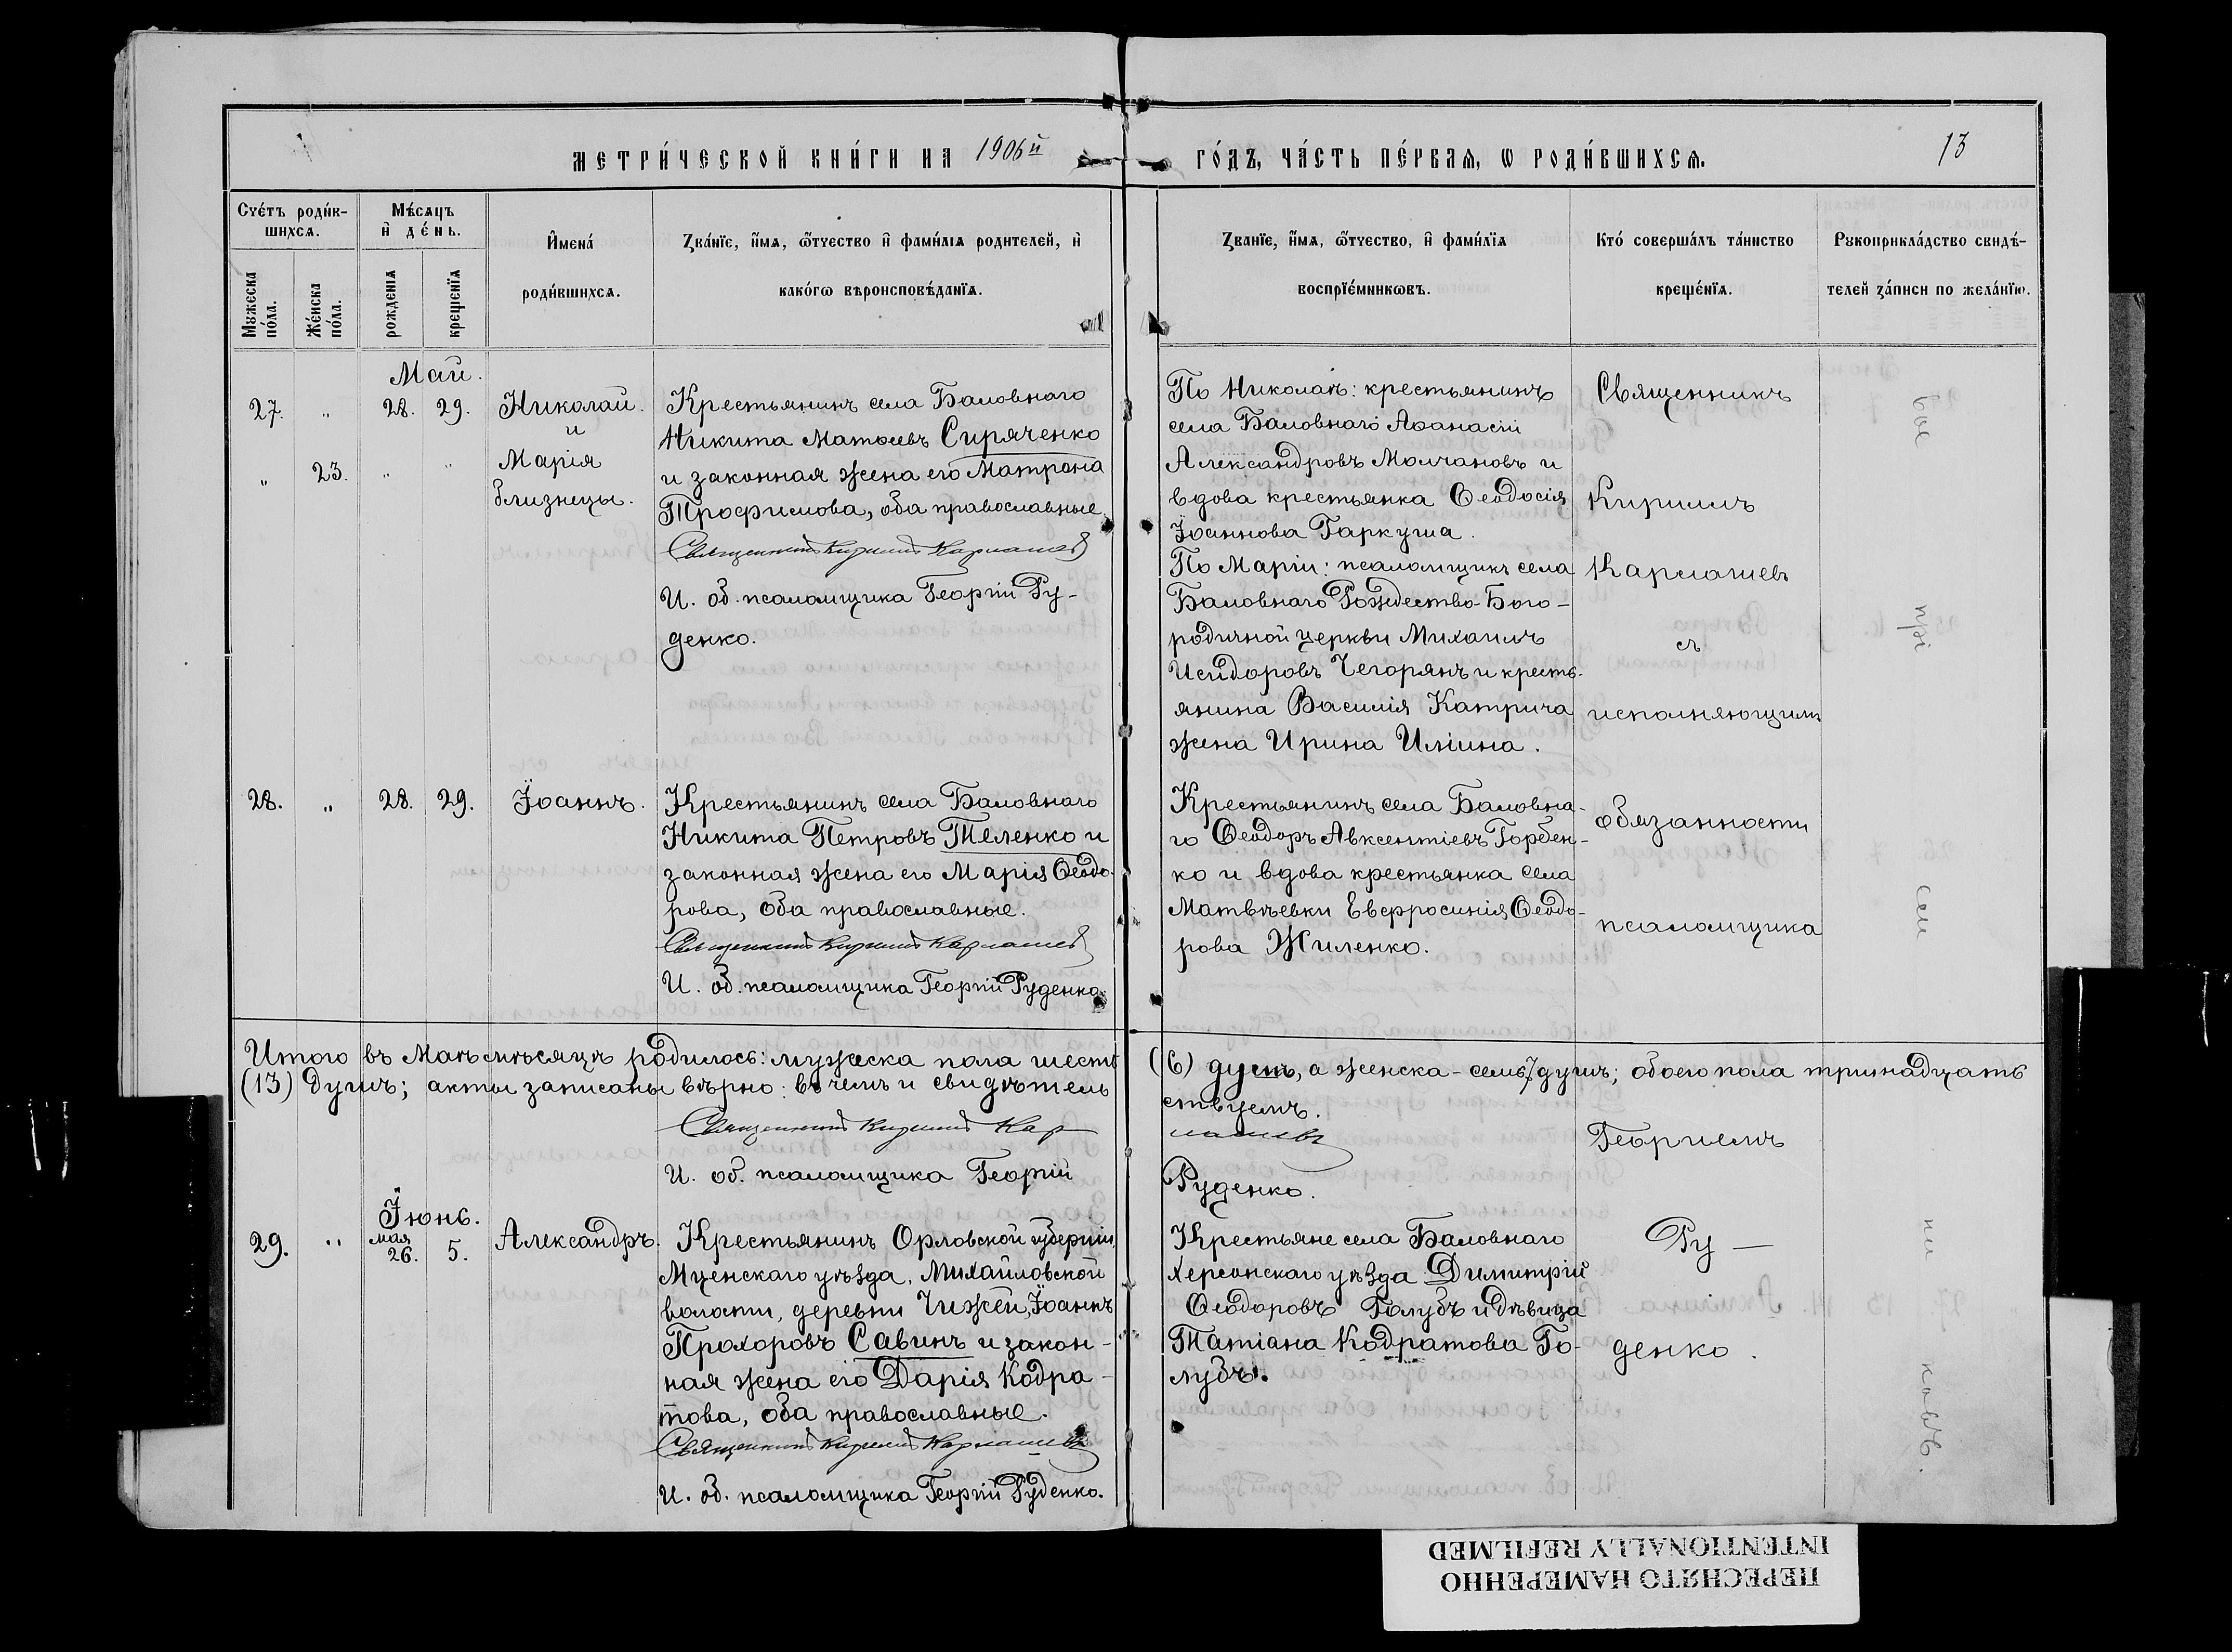 МЕТРИ́ЧЕСКОЙ КНИ́ГИ НА 1906й ГО́ДЪ, ЧА́СТЬ ПЕ́РВАЯ, Ѡ РОДИ́ВШИХСЯ.
13
Счетъ роди́в-
шихся.
Мѣ́сяцъ
и̂ де́нь.
Мꙋжеска по́ла.
Же́нска по́ла.
рожденія
крещенїя
И̂мена́
роди́вшихся.
Зва́нїе, и̂мя, ѻ̂тчество и̂ фами́лїя родителей, и̂
како́гѡ вѣроисповѣ́данїя.
Званїе, и̂мя, ѻ̂тчество, и̂ фами́лїя
воспрїе́мникѡвъ.
Кто́ соверша́лъ та́инство
креще́нїя.
Рꙋкоприкла́дство свидѣ́-
телей за́писи по жела́нїю.
Май.
27. " 28. 29. Николай.
и
" 23. " " Марія
близнецы.
Крестьянинъ села Баловнаго
Никита Матѳеевъ Сиряченко
и законная жена его Матрона
Трофимова, оба православные.
Священникъ Кириллъ Карпашевъ
И. об. псаломщика Георгій Ру-
денко.
По Николаѣ: крестьянинъ
села Баловнаго Аѳанасій
Александровъ Молчановъ и
вдова крестьянка Ѳеодосія
Іоаннова Гаркуша.
По Маріи: псаломщикъ села
Баловнаго Рождество-Бого-
родичной церкви Михаилъ
Исидоровъ Чегорянъ и кресть-
янина Василія Катрича
жена Ирина Иліина.
28. " 28. 29. Іоаннъ.
Крестьянинъ села Баловнаго
Никита Петровъ Теленко и
законная жена его Марія Ѳеодо-
рова, оба православные.
Священникъ Кириллъ Карпашевъ
И. об. псаломщика Георгій Руденко.
Крестьянинъ села Баловна-
го Ѳеодоръ Авксентіевъ Горбен-
ко и вдова крестьянка села
Матвѣевки Евфросинія Ѳеодо-
рова Жиленко.
Итого въ Маѣ мѣсяцѣ родилось: мужеска пола шесть (6) душъ, а женска - семь 7 душъ; обоего пола тринадцать
(13) душъ; акты записаны вѣрно: въ чемъ и свидѣтельствуемъ.
Священникъ Кириллъ Карпашевъ
И. об. псаломщика Георгій Руденко.
Іюнь.
29. " мая 26. 5. Александръ.
Крестьянинъ Орловской губерніи,
Мценскаго уѣзда, Михайловской
волости, деревни Чижей, Іоаннъ
Прохоровъ Савинъ и закон-
ная жена его Дарія Кодра-
това, оба православные.
Священникъ Кириллъ Карпашевъ
И. об. псаломщика Георгій Руденко.
Крестьяне села Баловнаго
Херсонскаго уѣзда Димитрій
Ѳеодоровъ Голубъ и дѣвица
Татіана Кодратова Го-
лубъ.
Священникъ
Кириллъ
Карпашевъ
съ
исполняющимъ
обязанности
псаломщика
Георгіемъ
Ру-
денко.
ПЕРЕСНЯТО НАМЕРЕННО
INTENTIONALLY REFILMED